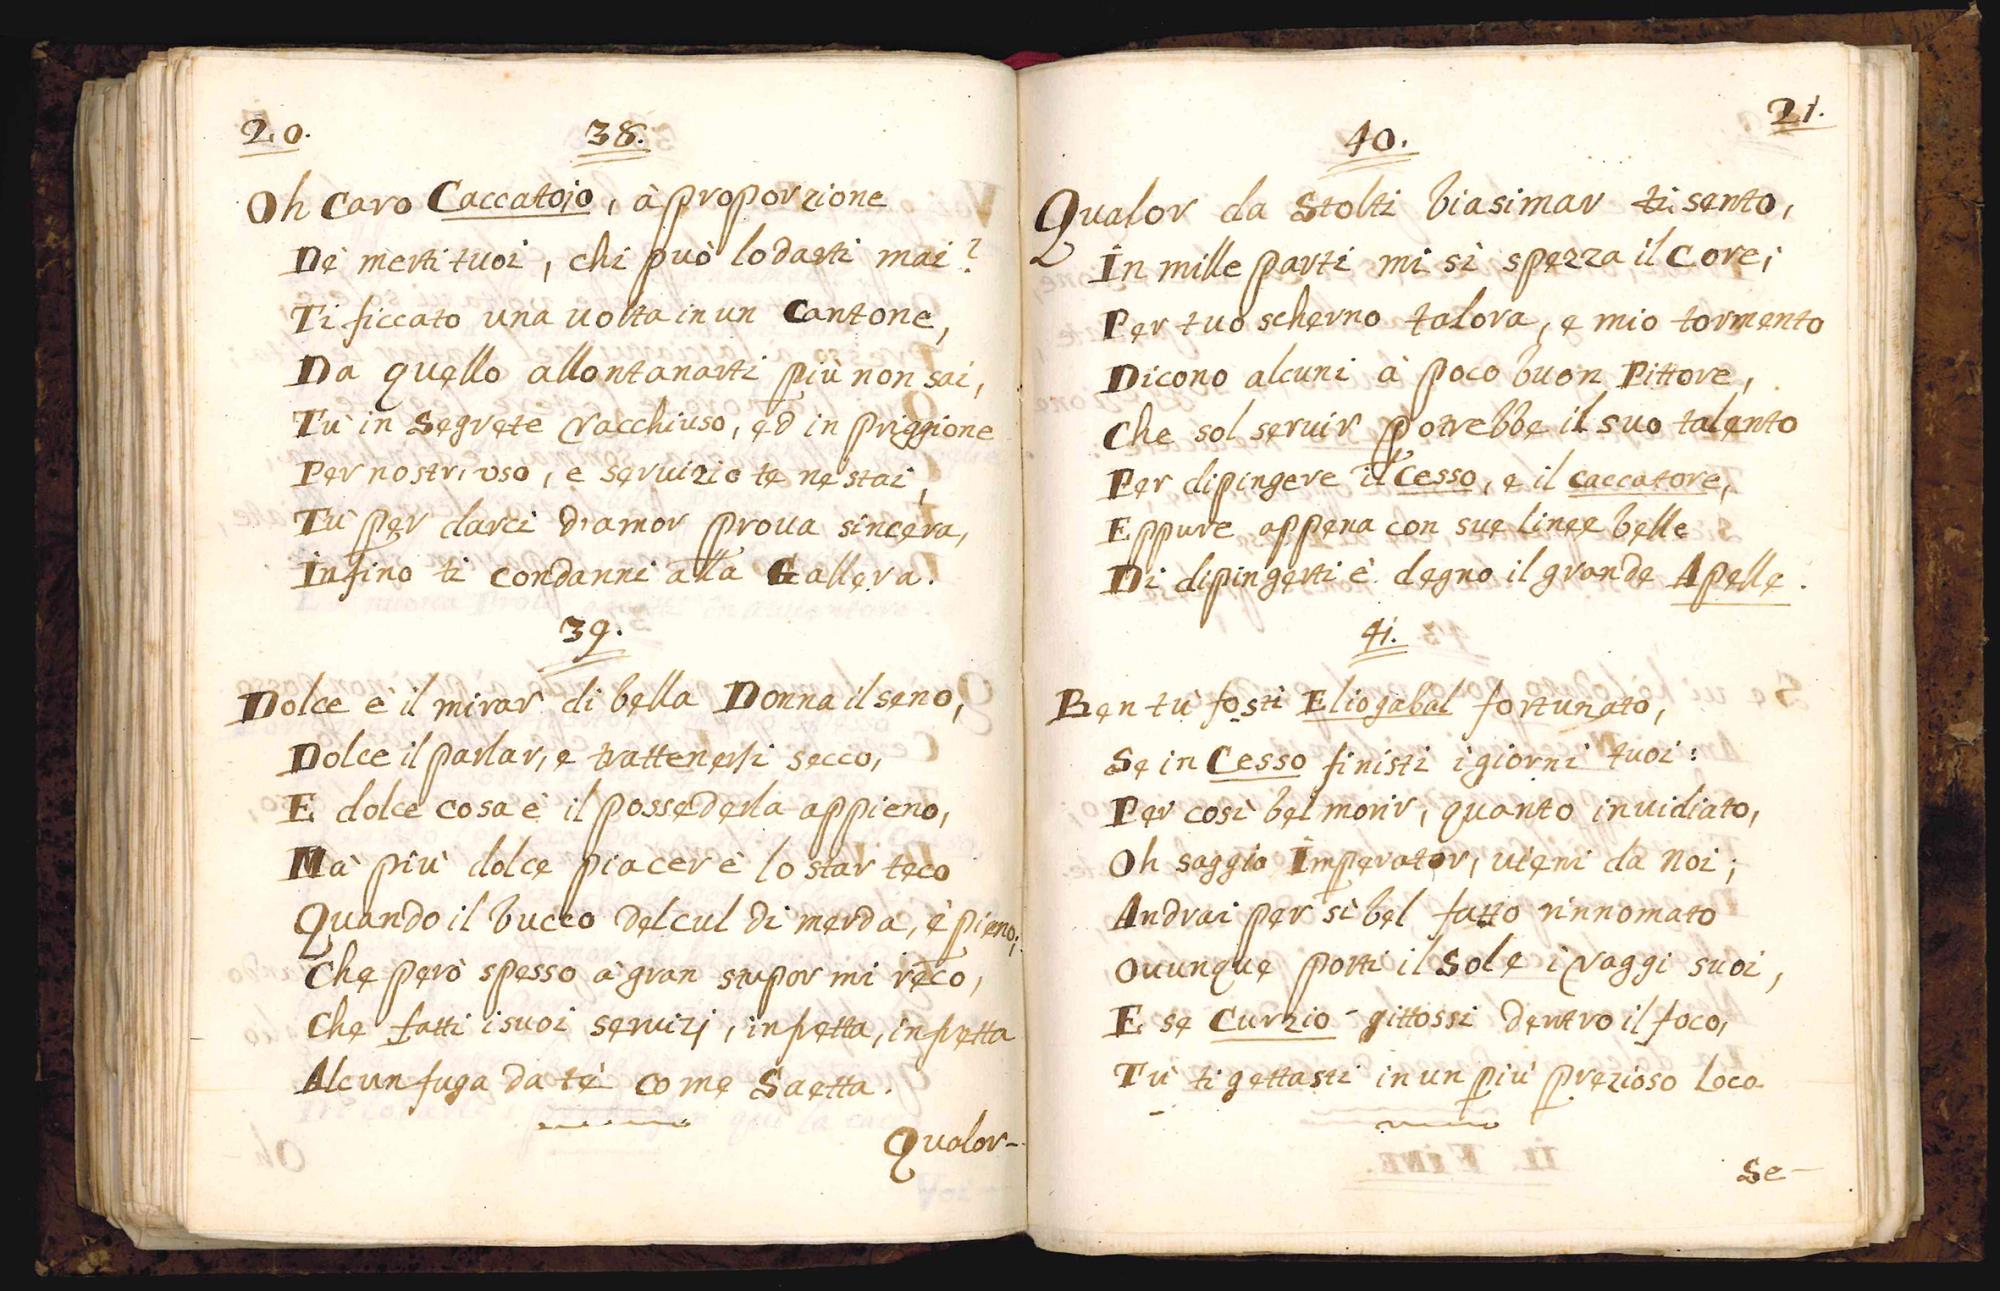 20.
38.
Oh Caro Caccatojo, à proporzione
Dè merti tuoi, chi può lodarti mai?
Ti ficcato una uolta in un Cantone,
Da quello allontanarti più non sai,
Tù in Segrete racchiuso, ed in priggione
Per nostr' uso, e seruizio te ne stai,
Tù per darci d'amor proua sincera,
Infino ti condanni alla Gallera.
39.
Dolce è il mirar di bella Donna il seno,
Dolce il parlar, e trattenersi secco,
E dolce cosa è il possederla appieno,
Mà più dolce piacer è lo star teco
Quando il bucco del cul di merda, è pieno;
Che però spesso à gran stupor mi reco,
Che fatti i suoi seruizj, in fretta, in fretta
Alcun fuga da tè come Saetta.
Qualor-
21.
40.
Qualor da Stolti biasimar ti sento,
In mille parti mi si spezza il Core;
Per tuo scherno talora, e mio tormento
Dicono alcuni à poco buon Pittore,
Che sol seruir potrebbe il suo talento
Per dipingere il Cesso, e il caccatore,
Eppure appena con sue linee belle
Di dipingerti è degno il grande Apelle.
41.
Ben tù fosti Eliogabal fortunato,
Se in Cesso finisti i giorni tuoi:
Per così bel morir, quanto inuidiato,
Oh saggio Imperator, uieni da noi;
Andrai per sì bel fatto rinnomato
Ouunque porti il Sole i raggi suoi,
E se Curzio gittossi dentro il foco,
Tù ti gettasti in un più prezioso loco
Se-